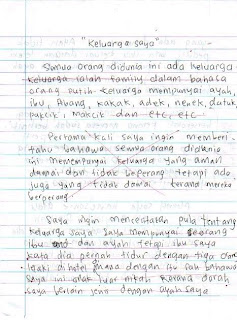 "Keluarga saya"
Semua orang didunia ini ada keluarga
Keluarga ialah family dalam bahasa
orang putih. Keluarga mempunyai ayah,
ibu, Abang, kakak, adek, nenek, datuk,
pakcik, makcik dan etc, etc.
Pertama kali saya ingin memberi-
tahu bahawa semua orang didunia
ini mempunyai keluarga yang aman
damai dan tidak beperang tetapi ada
juga yang tidak damai kerana mereka
berperang.
Saya ingin menceritakan pula tentang
keluarga saya. Saya mempunyai seorang
ibu dan ayah tetapi ibu saya
kata dia pernah tidur dengan tiga orang
lelaki di hotel mana dengan itu sah bahawa
saya ini anak luar nikah kerana darah
saya berlain jenis dengan ayah saya